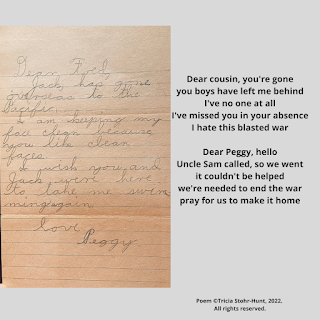 Dear Fred,
Jack has gone
overseas to the
Pacific.
I am keeping my
face clean because
you like clean
faces.
I wish you and
Jack were here
to take me swim
ming again.
Love
Peggy
Dear cousin, you're gone
you boys have left me behind
I've no one at all
I've missed you in your absence
I hate this blasted war
Dear Peggy, hello
Uncle Sam called, so we went
it couldn't be helped
we're needed to end the war
pray for us to make it home
Poem ©Tricia Stohr-Hunt, 2022.
All rights reserved.